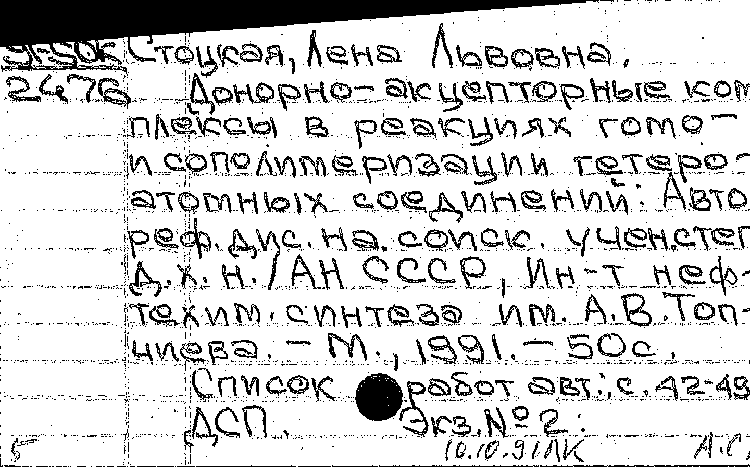 91-50к Стоцкая, Лена Львовна.
2476 Донорно-акцепторные ком
плексы в реакциях гомо-
и сополимеризации гетеро-
атомных соединений: Авто
реф. дис. на. соиск. учен.степ
д.х.н. / АН СССР, Ин-т неф-
техим. синтеза им. А.В.Топ-
чиева. - М., 1991. - 50с.
Список работ авт.: с. 42-49
ДСП. Экз.№2.
5 10.10.91ЛК А.С.